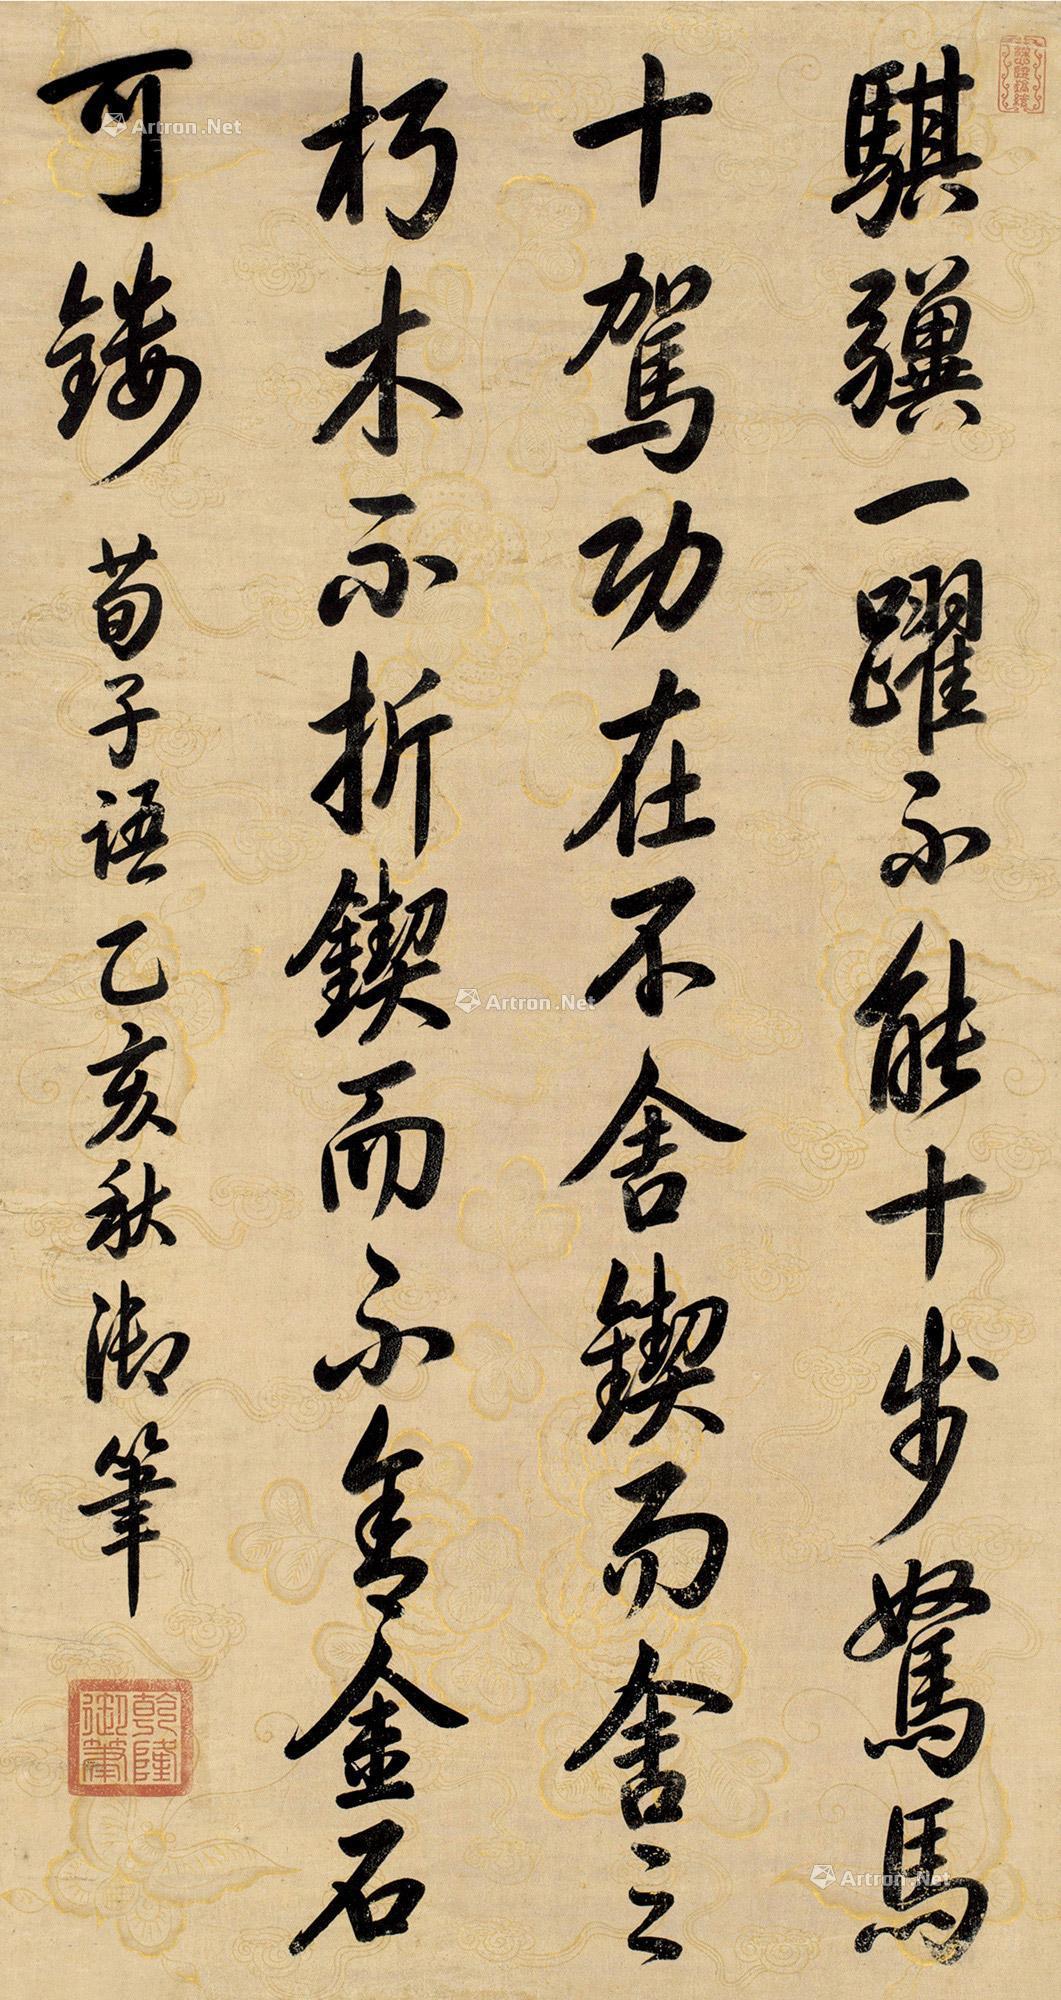 騏驥一躍不能十步駑馬
十駕功在不舍鍥而舍之
朽木不折鍥而不舍金石
可鏤 荀子語 乙亥秋御筆
乾隆御筆
Artron.Net
Artron.Net
Artron.Net